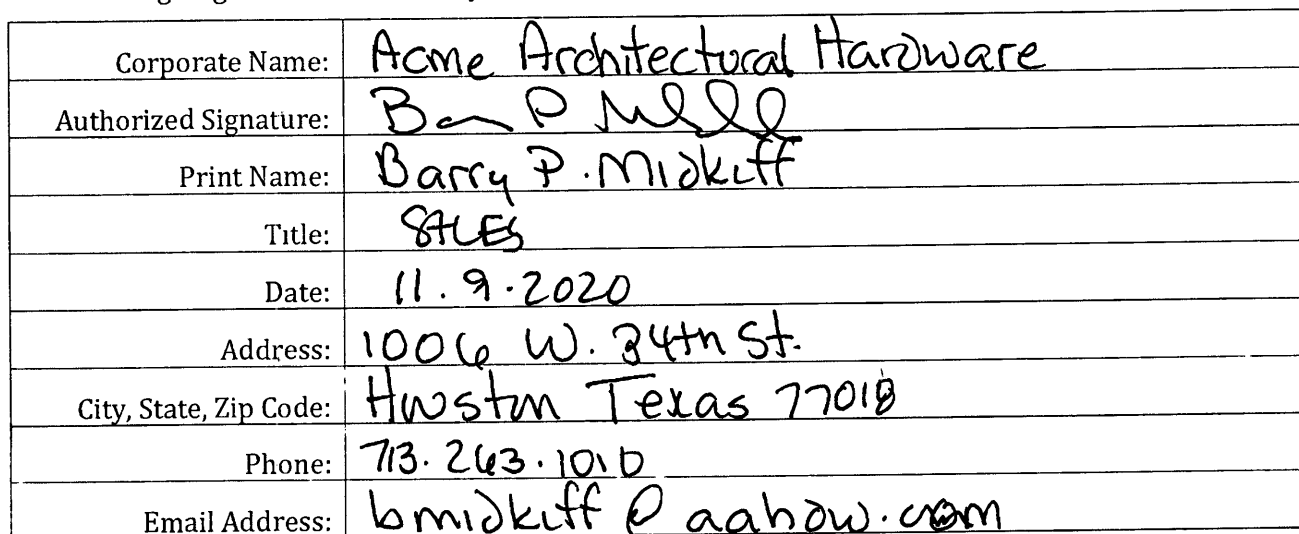 Corporate Name: Acme Architectural Hardware
Authorized Signature:
Print Name: Barry P. Midkiff
Title: SALES
Date: 11.9.2020
Address: 1006 W. 34th St.
City, State, Zip Code: Houston Texas 77018
Phone: 713.263.1010
Email Address: bmidkiff@aahdw.com